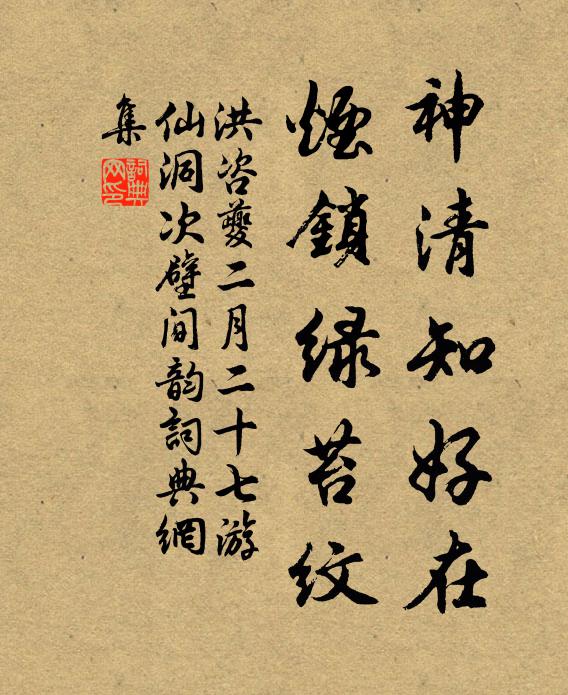 神清知好在
煙鎖綠苔紋
洪咨夔二月二十七游
仙洞次壁间韵詞典網
集
詞典网印